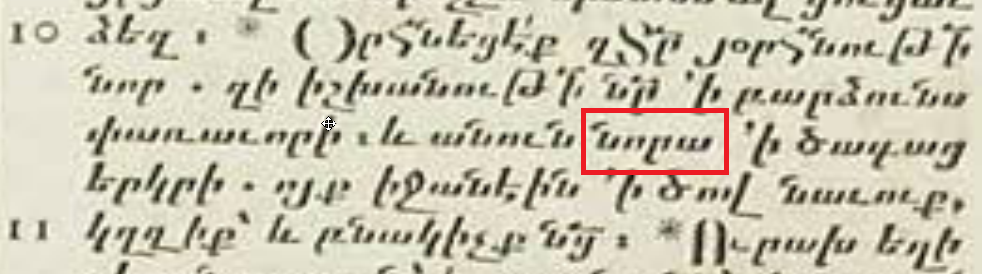 10 ձեզ ։ * ( )րհնեցէ՛ք զՏր յօրհնութի
նոր . զի իշխանութի նր ՚ի բարձունս
փառաւորի ։ և անուն նորա ՚ի ծագաց
երկրի . ոյք իջանէին ՚ի ծով նաւուք,
11 կղզիք՝ և բնակիչք նց ։ * Ուրախ եղի